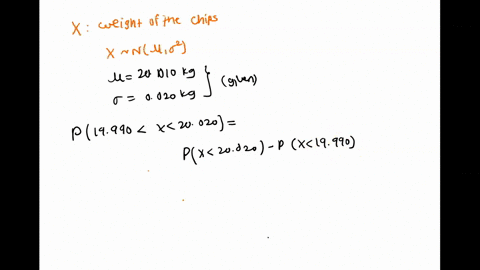 X: weight of the chips
X ~ N(μ, σ²)
μ = 20.010 kg
σ = 0.020 kg } (given)
P(19.990 < x < 20.020) =
P(x < 20.020) - P(x < 19.990)